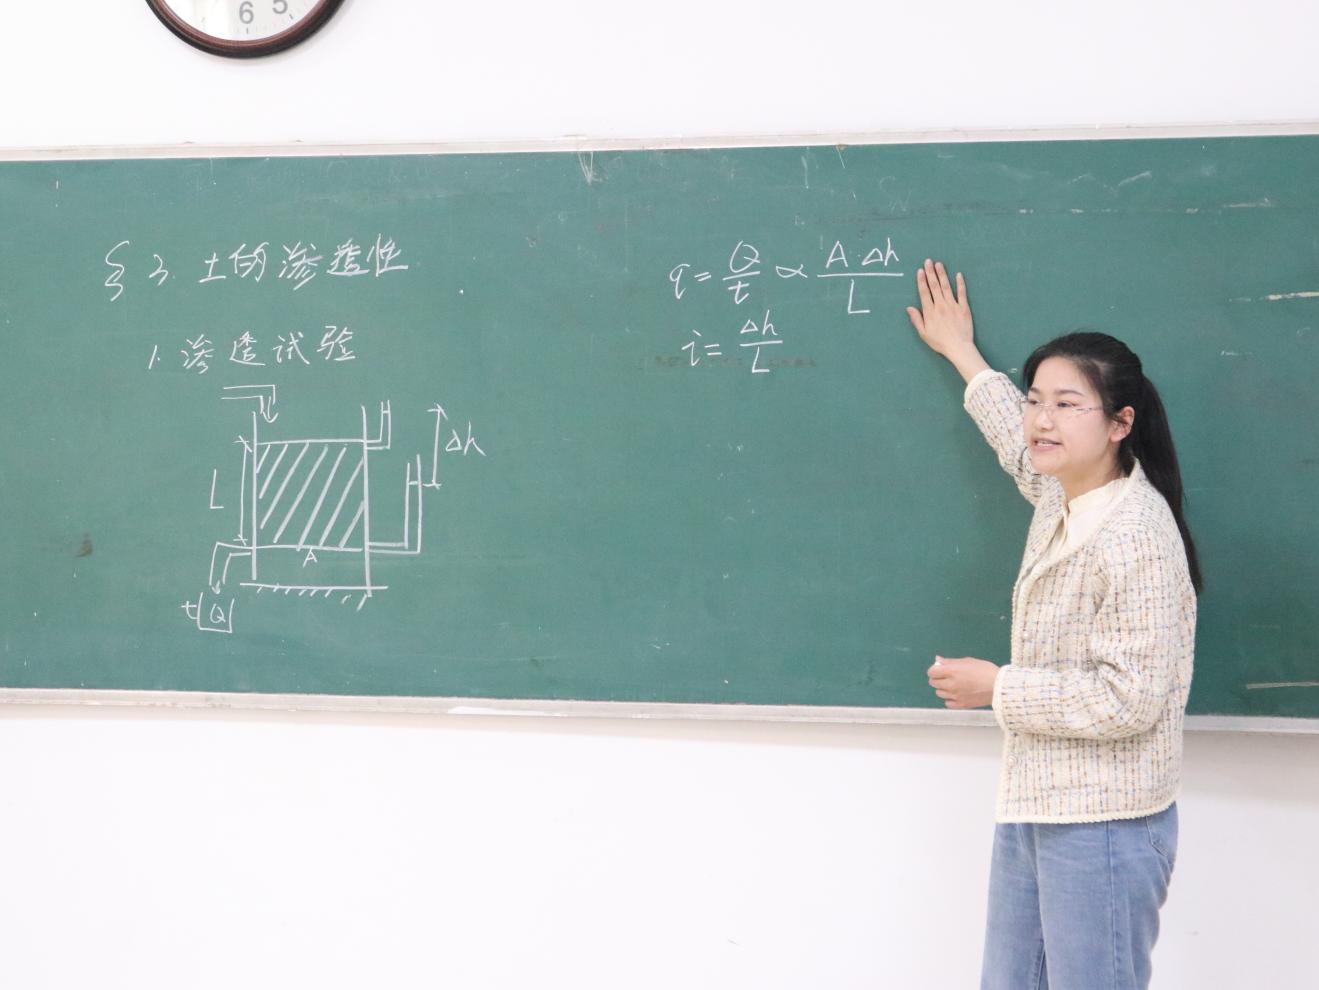 6 5
§3. 土的渗透性
1. 渗透试验
Δh
L
A
t Q
q = Q/t ∝ A·Δh/L
i = Δh/L